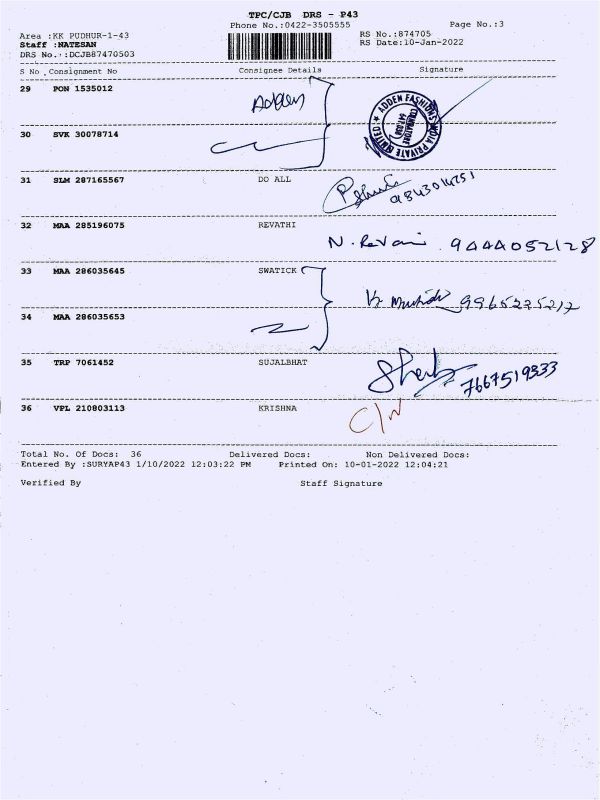 TPC/CJB DRS - P43
Phone No.:0422-3505555
Page No.:3
Area :KK PUDHUR-1-43
RS No.:874705
Staff :NATESAN
RS Date:10-Jan-2022
DRS No.:DCJB87470503
S No Consignment No Consignee Details Signature
29 PON 1535012 Adden
ADDEN FASHIONS INDIA PRIVATE LIMITED
COIMBATORE
30 SVK 30078714
31 SLM 287165567 DO ALL
32 MAA 285196075 REVATHI
N. Revathi 9444052128
33 MAA 286035645 SWATICK
34 MAA 286035653
35 TRP 7061452 SUJALBHAT
7667519333
36 VPL 210803113 KRISHNA
Total No. Of Docs: 36 Delivered Docs: Non Delivered Docs:
Entered By :SURYAP43 1/10/2022 12:03:22 PM Printed On: 10-01-2022 12:04:21
Verified By Staff Signature